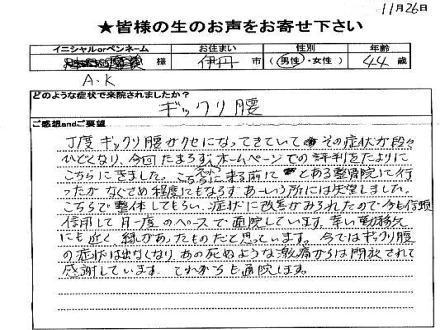 11月26日
★皆様の生のお声をお寄せ下さい
イニシャルorペンネーム お住まい 性別 年齢
様 伊丹 市 (男性・女性) 44 歳
A.K
どのような症状で来院されましたか?
ギックリ腰
ご感想andご要望
丁度ギックリ腰がクセになってきていてその症状が段々
ひどくなり、今回たまらず、ホームページでの評判をたよりに
こちらにきました。こちらに来る前にとある整骨院に行
ったがなぐさめ程度にもならずあーいう所には失望しました。
こちらで整体してもらい、症状に改善がみられたので今も信頼
信用して月一度のペースで通院しています。幸い勤務先
にも近く縁があったものだと思っています。今ではギックリ腰
の症状は出なくなりあの死ぬような激痛からは開放されて
感謝しています。これからも通院します。